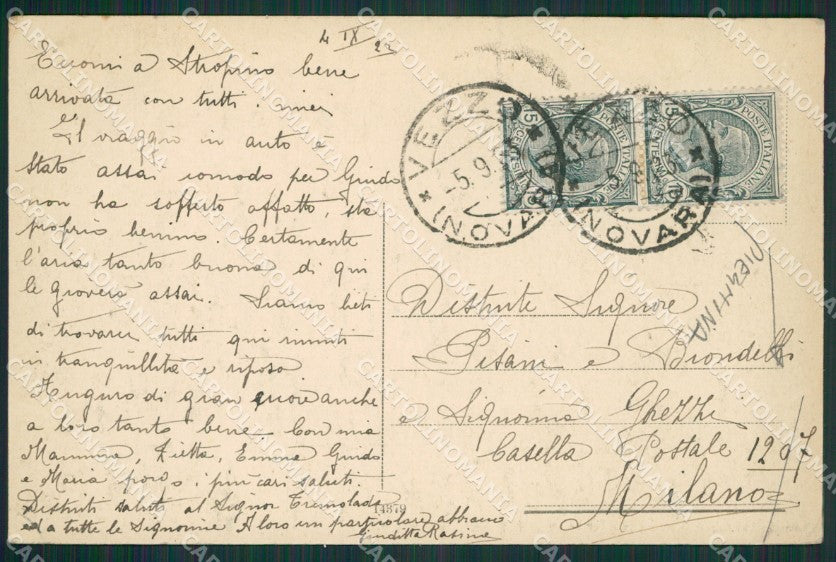 4 IX 22
Eccomi a Stropino bene
arrivata con tutti i miei
Il viaggio in auto è
stato assai comodo per Guido
non ha sofferto affatto, sta
proprio benino. Certamente
l'aria tanto buona di qui
le gioverà assai. Siamo lieti
di trovarci tutti qui riuniti
in tranquillità e riposo
Auguro di gran cuore anche
a loro tanto bene. Con una
Mammina, Zietta, Emma Guido
e Maria porgo i più cari saluti.
Distinti saluti al Signor Tremolada
ed a tutte le Signorine A loro un particolare abbraccio
Giuditta
VEZZO
-5.9.
(NOVARA)
VEZZO
(NOVARA)
15
POSTE ITALIANE
15
POSTE ITALIANE
PIERHINA
Distinte Signore
Pisani e Biondelli
e Signorina Ghezzi
Casella Postale 1207
Milano
4879
CARTOLINOMANIA